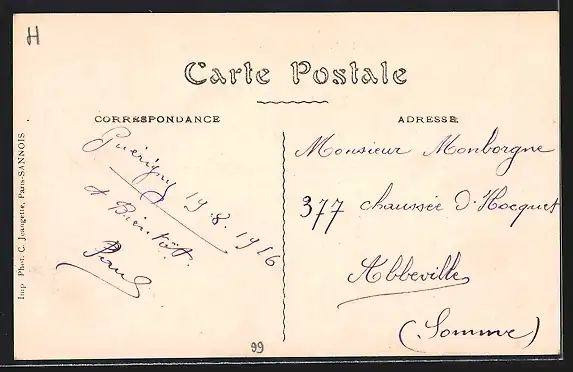 H
Carte Postale
CORRESPONDANCE
ADRESSE
Guérigny 19.8.1916
A Bientôt.
Monsieur Monborgne
377 chaussée d'Hocquet
Abbeville
(Somme)
Imp. Phot. C. Jeangette, Paris-SANNOIS
99